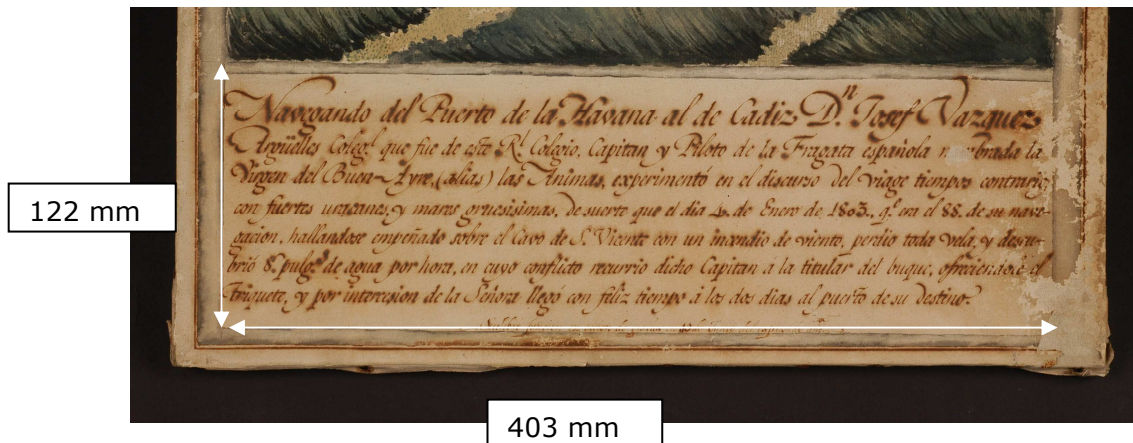 Navegando del Puerto de la Havana al de Cadiz D.n Josef Vazquez
Argüelles Coleg.l que fue de este R.l Colegio, Capitan y Piloto de la Fragata española nombrada la
Virgen del Buen-Ayre, (alias) las Animas, experimentó en el discurso del viage tiempos contrarios
con fuertes uracanes, y mares gruesisimas, de suerte que el dia 4 de Enero de 1803. q.e era el 88. de su nave-
gacion, hallandose empeñado sobre el Cavo de S. Vicente con un incendio de viento, perdio toda vela, y descu-
brió 8. pulg.s de agua por hora, en cuyo conflicto recurrio dicho Capitan á la titular del buque, ofreciendole el
Triquete, y por intercesion de la Señora llegó con feliz tiempo á los dos dias al puerto de su destino.
122 mm
403 mm